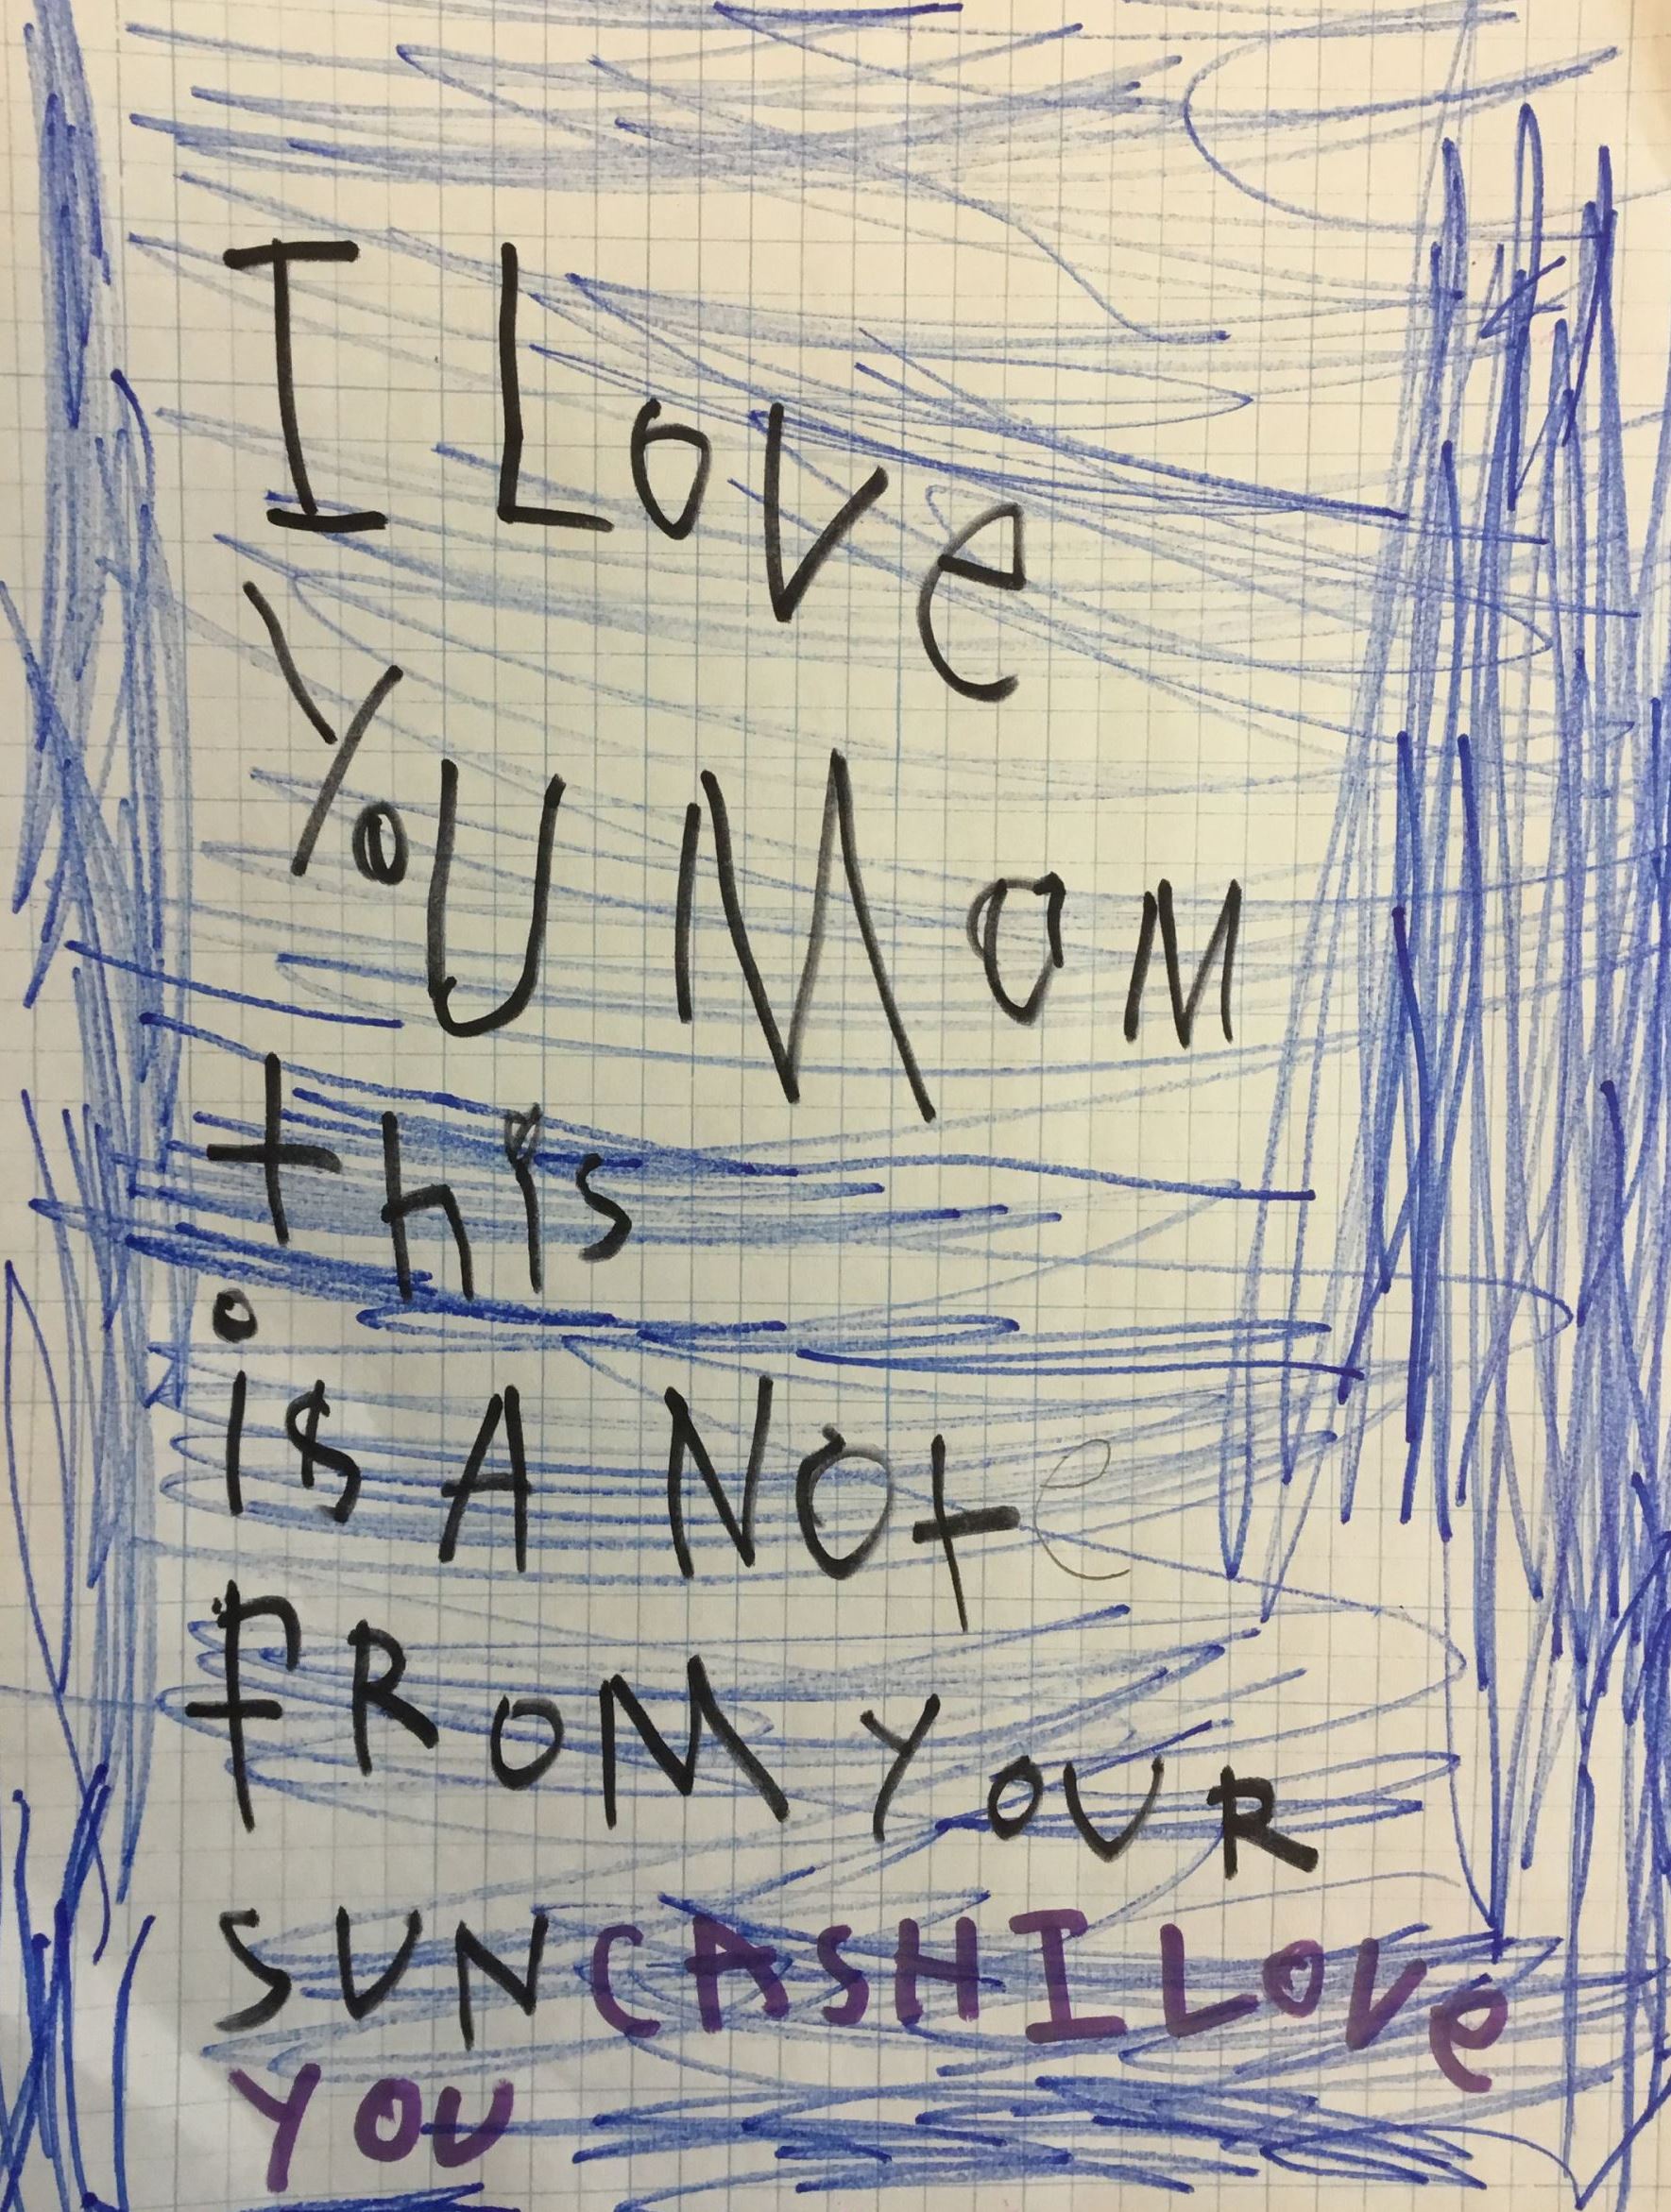 I Love
YoU MoM
this
is A NOte
FROM YOUR
SUN CASH I LOVe
YOU